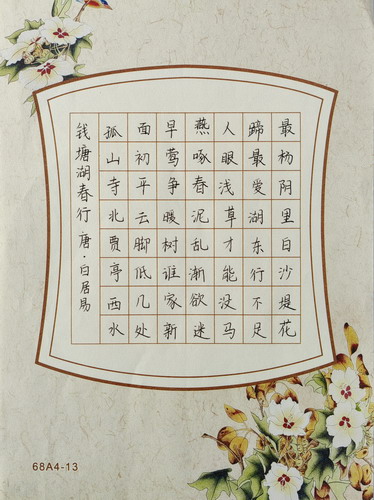 钱塘湖春行 唐·白居易
孤山寺北贾亭西水
面初平云脚低几处
早莺争暖树谁家新
燕啄春泥乱渐欲迷
人眼浅草才能没马
蹄最爱湖东行不足
最杨阴里白沙堤花
68A4-13